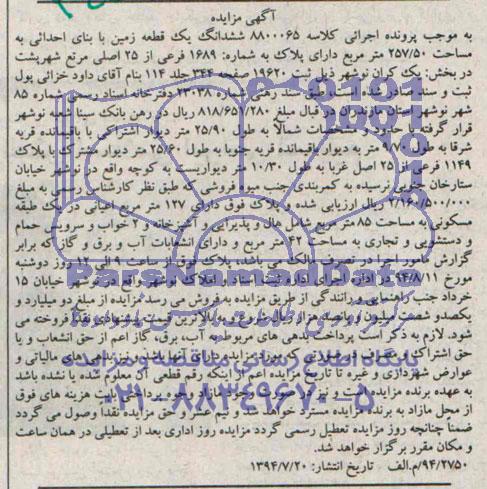 آگهی مزایده
به موجب پرونده اجرائی کلاسه ۸۸۰۰۰۶۵ ششدانگ یک قطعه زمین با بنای احداثی به
مساحت ۲۵۷/۵۰ متر مربع دارای پلاک به شماره: ۱۶۸۹ فرعی از ۲۵ اصلی مرتع شهرپشت
در بخش: یک کران نوشهر ذیل ثبت ۱۹۶۲۰ صفحه ۳۴۴ جلد ۱۱۴ بنام آقای داود خزائی پول
ثبت و سند صادر شده است. طبق سند رهنی شماره ۲۳۰۳۸ دفترخانه اسناد رسمی شماره ۸۵
شهر نوشهر استان مازندران در قبال مبلغ ۸۱۸/۶۵۱/۲۸۰ ریال در رهن بانک سینا شعبه نوشهر
قرار گرفته با حدود و مشخصات شمالا به طول ۲۵/۹۰ متر دیوار اشتراکی با باقیمانده قریه
شرقا به طول ۹/۷۰ متر به دیوار باقیمانده قریه جنوبا به طول ۲۵/۶۰ متر دیوار مشترک با پلاک
۱۱۴۹ فرعی از ۲۵ اصل غربا به طول ۱۰/۳۰ متر دیواریست به کوچه واقع در نوشهر خیابان
ستارخان جنوبی نرسیده به کمربندی جنب میوه فروشی که طبق نظر کارشناس رسمی به مبلغ
۲/۱۶۰/۵۰۰/۰۰۰ ریال ارزیابی شده و پلاک فوق دارای ۱۲۷ متر مربع اعیانی در یک طبقه
مسکونی به مساحت ۸۵ متر مربع شامل هال و پذیرایی و آشپزخانه و ۲ خواب و سرویس حمام
و دستشویی و تجاری به مساحت ۴۲ متر مربع و دارای انشعابات آب و برق و گاز که برابر
گزارش مامور اجرا در تصرف مالک می باشد، پلاک فوق از ساعت ۹ الی ۱۲ روز دوشنبه
مورخ ۹۴/۸/۱۱ در اداره اجرای اداره ثبت اسناد و املاک نوشهر واقع در نوشهر خیابان ۱۵
خرداد جنب راهنمایی و رانندگی از طریق مزایده به فروش می رسد مزایده از مبلغ دو میلیارد و
یکصدو شصت میلیون و پانصد هزار ریال شروع و به بالاترین قیمت پیشنهادی نقدا فروخته می
شود. لازم به ذکر است پرداخت بدهی های مربوط به آب، برق، گاز اعم از حق انشعاب و یا
حق اشتراک و مصرف در صورتی که مورد مزایده دارای آنها باشد و نیز بدهی های مالیاتی و
عوارض شهرداری و غیره تا تاریخ مزایده اعم از اینکه رقم قطعی آن معلوم شده یا نشده باشد
به عهده برنده مزایده است و نیز در صورت وجود مازاد وجوه پرداختی بابت هزینه های فوق
از محل مازاد به برنده مزایده مسترد خواهد شد و نیم عشر و حق مزایده نقدا وصول می گردد
ضمنا چنانچه روز مزایده تعطیل رسمی گردد مزایده روز اداری بعد از تعطیلی در همان ساعت
و مکان مقرر برگزار خواهد شد.
۹۴/۲۷۵۰/م.الف تاریخ انتشار: ۱۳۹۴/۷/۲۰
ParsNamadData
پایگاه اطلاع رسانی مناقصه مزایده
۰۲۱-۸۸۳۴۹۶۷۰-۵